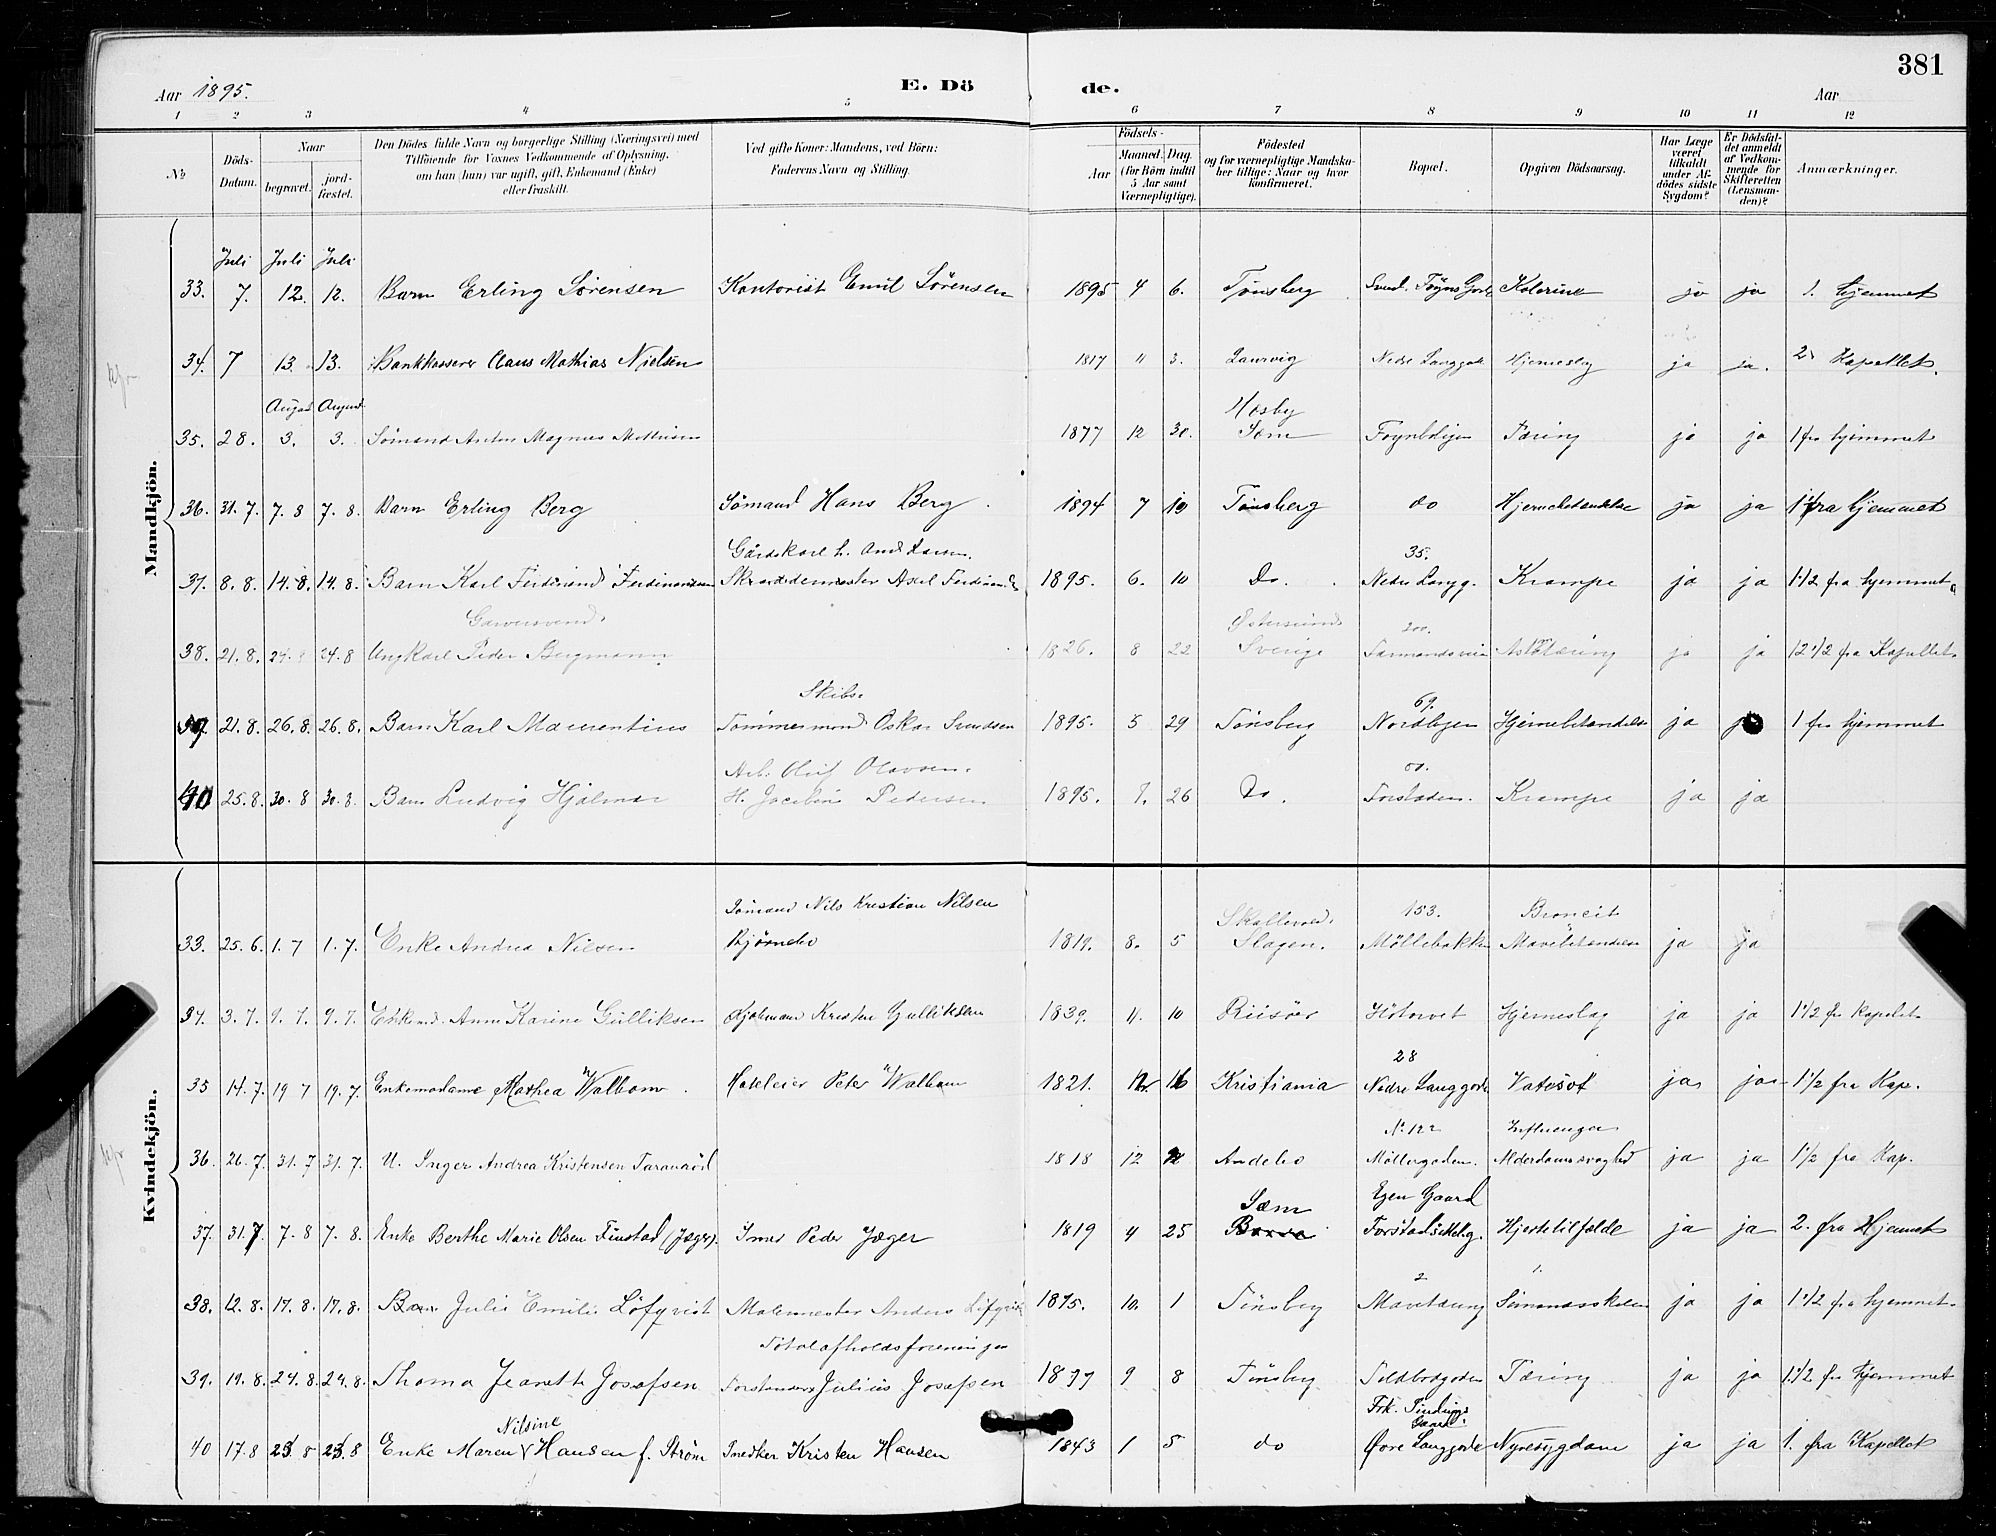 381
Aar 1895. E. Dö de. Aar
1 2 3 4 5 6 7 8 9 10 11 12
№ Döds-Datum. Naar begravet. jordfæstet. Den Dödes fulde Navn og borgerlige Stilling (Næringsvei) med Tilföiende for Voxnes Vedkommende af Oplysning, om han (hun) var ugift, gift, Enkemand (Enke) eller fraskilt. Ved gifte Koner: Mandens, ved Börn: Faderens Navn og Stilling. Födsels- Aar Maaned. Dag. (for Börn indtil 5 Aar samt Værnepligtige). Födested og for værnepligtige Mandskaber tillige: Naar og hvor konfirmeret. Bopæl. Opgiven Dödsaarsag. Har Læge været tilkaldt under Afdödes sidste Sygdom? Er Dödsfaldet anmeldt af Vedkommende for Skifteretten (Lensmanden)? Anmærkninger.
Mandkjön.
Juli Juli Juli
33. 7. 12. 12. Barn Erling Sörensen Kontorist Emil Sörensen 1895 4 6. Tönsberg Kolerine ja ja 1. hjemmet
34. 7 13. 13. Bankkasserer Claus Mathias Nielsen 1817 11 3. Laurvig Nedre Langgade ja ja. 2 Kapellet.
August August
35. 28. 3. 3. Sömand Anton Magnus Mathisen 1877 12 30. Mosby Sem Tæring ja ja 1 fra hjemmet
36. 31.7. 7.8 7.8. Barn Erling Berg Sömand Hans Berg. 1894 7 10 Tönsberg do ja ja 1 fra hjemmet
Gårdskarl L. And. Larsen. 35.
37. 8.8. 14.8. 14.8. Barn Karl Ferdinand Ferdinandsen Skræddermester Axel 1895. 6. 10 Do. Nedre Langg. Krampe ja ja 1 1/2 fra hjemmet
Garversvend. Östersund 200.
38. 21.8. 24.8 24.8 Ungkarl Peder Bergmann 1826. 8 22 Sverige ja ja 12 1/2 fra Kapellet.
Skibs. 69.
39. 21.8. 26.8. 26.8. Barn Karl Maurentius Tömmermand Oskar Svendsen 1895. 5 29 Tönsberg Nordbyen Hjernebetændelse ja 1 fra hjemmet
Arb. Oluf Olavsen.
40 25.8. 30.8 30.8. Barn Ludvig Hjalmar H. Jacobine Pedersen 1895. 26 Do. Forstaden. Krampe ja ja
Kvindekjön.
Sömand Nils Kristian Nilsen Skallevold. 153. Broncit
33. 25.6. 1.7 1.7. Enke Andrea Nilsen Björnebo 8. 5 Slagen. Möllebakken Mavebetændelse ja ja
34. 3.7. 9.7. 9.7. Anne Karine Gulliksen Kristen Gulliksen 1839. 11. 10 Riisöer Hötorvet Hjerneslag ja ja 1 1/2 fr kapelet
28
35 14.7. 19 7 19.7. Enkemadame Mathea Walbom Peter Walbom 1821. 16 Kristiania Nedre Langgade Vatesot ja ja 1 1/2 fra Kap.
No 122 Influenza
36. 26.7. 31.7 31.7. U. Inger Andrea Kristensen 1818 12 Andebo Möllergaden. Alderdomssvaghed ja ja 1 1/2 fra Kap.
Sem Egen Gaard
37. 31.7 7.8 7.8. Enke Berthe Marie Olsen Finstad (Jæger). Peder Jæger 1819 4 25 Hjertetilfælde ja ja 2. fra Hjemmet
2 1.
38. 12.8. 17.8. 17.8. Barn Julie Emilie Löfqvist Malermester Anders Löfqvist 1895. 10. 1 Tönsberg ja ja 1 1/2 fra hjemmet
Totalafholdsforeningen
39. 19.8. 24.8. 24.8. Thoma Jeanette Josefsen Forstander Julius Josefsen 9 8 Tönsberg Tæring ja ja 1 1/2 fr hjemmet
Nilsine Frk.
40 17.8 8 8 Enke Maren Hansen f. Ström Snedker Kristen Hansen 1843 1 5 do Övre Langgade Nyresygdom ja ja 1. fra Kapellet